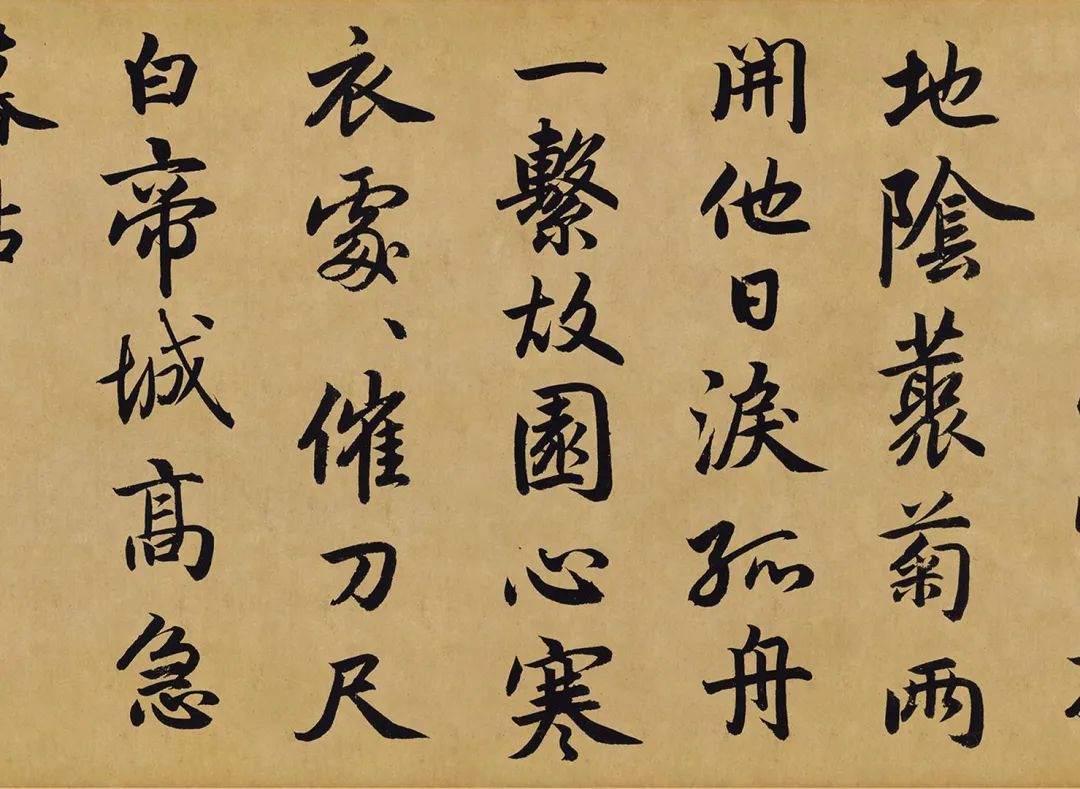 地陰藂菊兩
開他日淚孤舟
一繫故園心寒
衣處、催刀尺
白帝城高急
暮砧